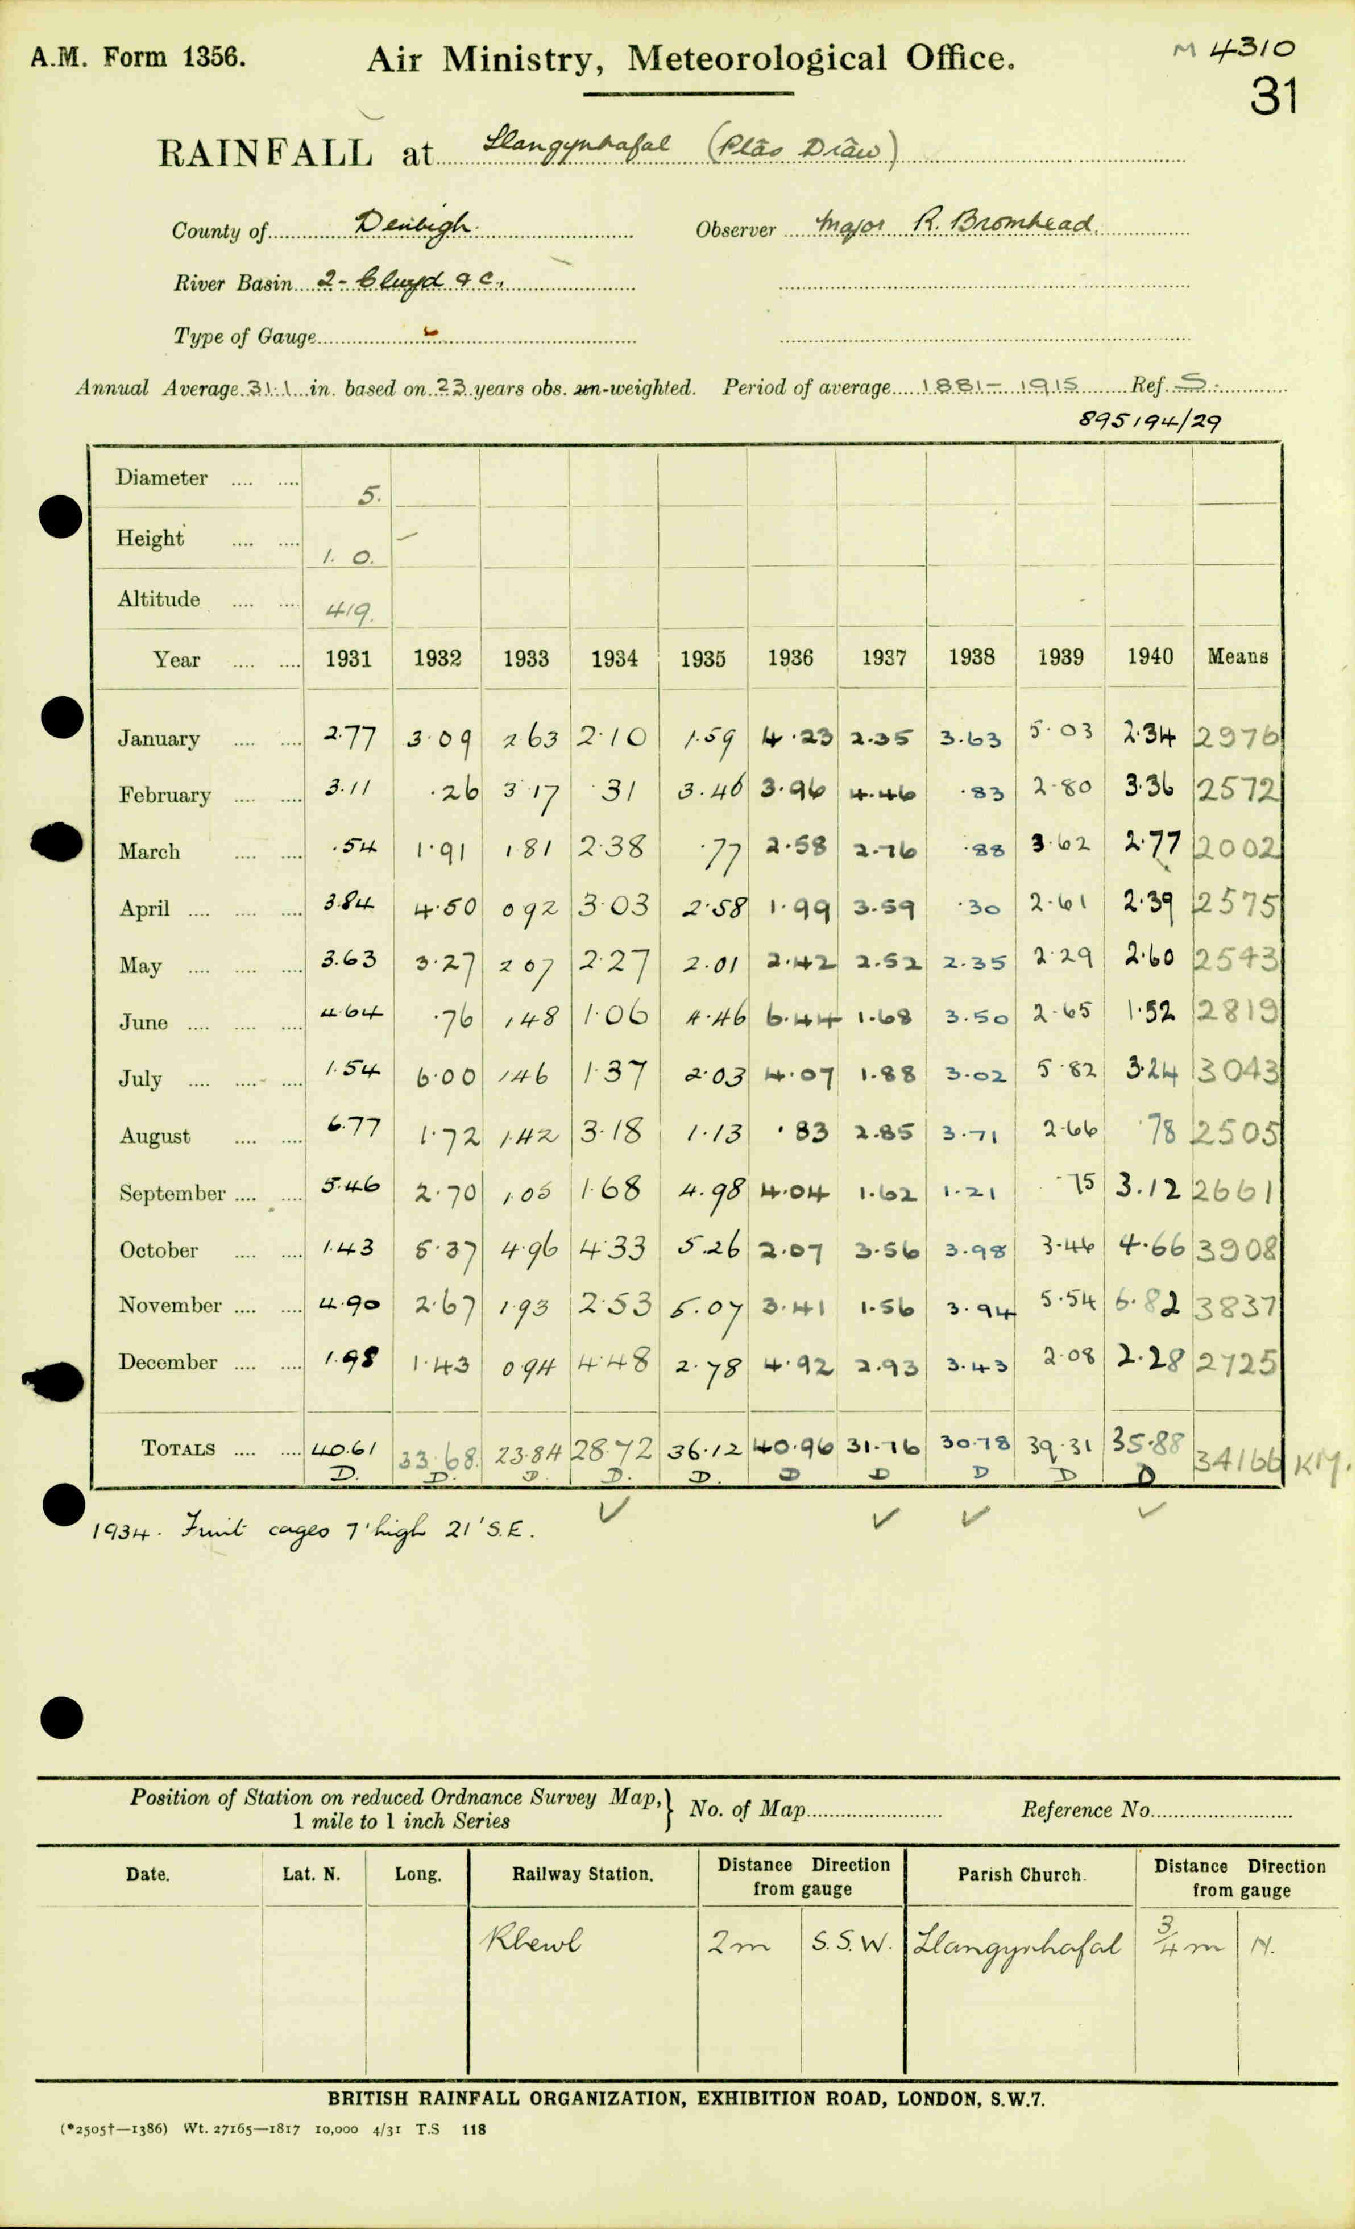 A.M. Form 1356.
Air Ministry, Meteorological Office.
M 4310
31
RAINFALL at Llangynhafal (Plâs Drâw)
County of Denbigh. Observer Major R. Bromhead.
River Basin 2 - Clwyd &c.
Type of Gauge
Annual Average 31.1 in. based on 23 years obs. un-weighted. Period of average 1881 - 1915 Ref. S.
895194/29
Diameter .... .... 5.
Height .... .... 1. 0.
Altitude .... .... 419.
Year .... .... 1931 1932 1933 1934 1935 1936 1937 1938 1939 1940 Means
January .... .... 2.77 3.09 2 63 2.10 1.59 4.23 2.35 3.63 5.03 2.34 2976
February .... .... 3.11 .26 3 17 .31 3.46 3.96 4.46 .83 2.80 3.36 2572
March .... .... .54 1.91 1 81 2.38 .77 2.58 2.76 .88 3.62 2.77 2002
April .... .... .... 3.84 4.50 0 92 3.03 2.58 1.99 3.59 .30 2.61 2.39 2575
May .... .... .... 3.63 3.27 2 07 2.27 2.01 2.42 2.52 2.35 2.29 2.60 2543
June .... .... .... 4.64 .76 1 48 1.06 4.46 6.44 1.68 3.50 2.65 1.52 2819
July .... .... .... 1.54 6.00 1 46 1.37 2.03 4.07 1.88 3.02 5.82 3.24 3043
August .... .... 6.77 1.72 1.42 3.18 1.13 .83 2.85 3.71 2.66 .78 2505
September .... .... 5.46 2.70 1.05 1.68 4.98 4.04 1.62 1.21 .75 3.12 2661
October .... .... 1.43 5.37 4.96 4.33 5.26 2.07 3.56 3.98 3.46 4.66 3908
November .... .... 4.90 2.67 1.93 2.53 5.07 3.41 1.56 3.94 5.54 6.82 3837
December .... .... 1.98 1.43 0 94 4.48 2.78 4.92 2.93 3.43 2.08 2.28 2725
TOTALS .... .... 40.61 33.68. 23.84 28.72 36.12 40.96 31.76 30.78 39.31 35.88 34166 KM.
D. D. D. D. D. D D D D D
✓ ✓ ✓ ✓
1934. Fruit cages 7' high 21' S.E.
Position of Station on reduced Ordnance Survey Map, 1 mile to 1 inch Series } No. of Map Reference No.
Date. Lat. N. Long. Railway Station. Distance Direction from gauge Parish Church. Distance Direction from gauge
Rhewl 2m S.S.W. Llangynhafal 3/4 m N.
BRITISH RAINFALL ORGANIZATION, EXHIBITION ROAD, LONDON, S.W.7.
(*2505†—1386) Wt. 27165—1817 10,000 4/31 T.S 118